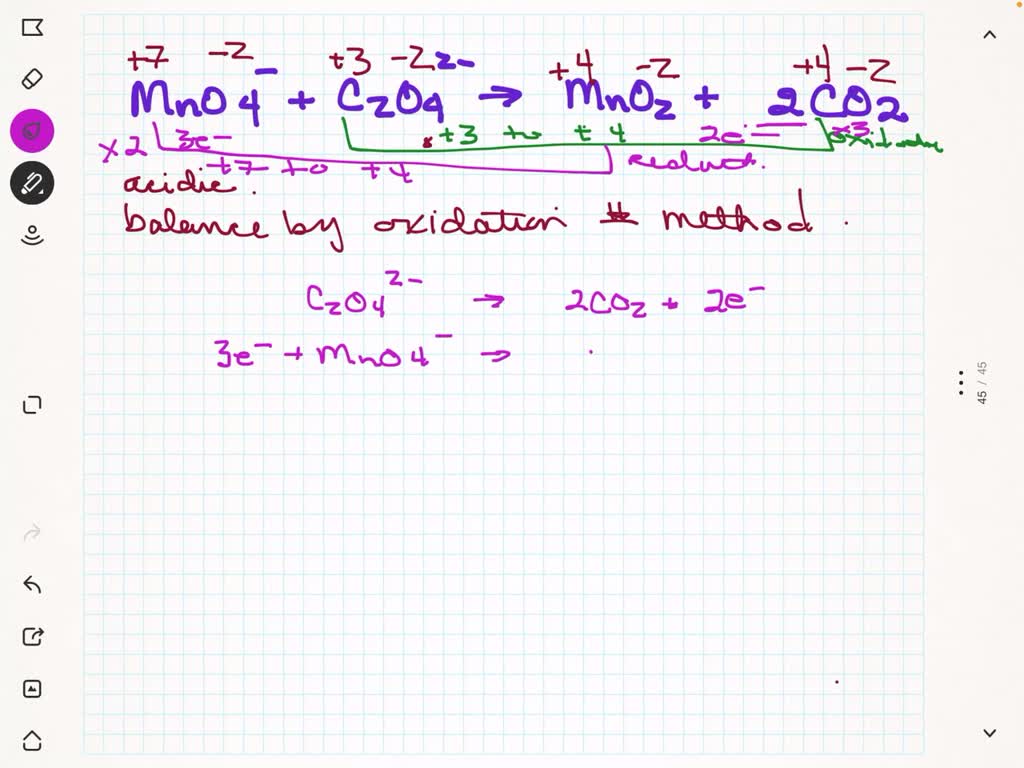 +7 -2 +3 -2 2- +4 -2 +4 -2
MnO4⁻ + C2O4 → MnO2 + 2CO2
×2 3e⁻ +3 to +4 2e⁻ ×3
+7 to +4 reduct.
acidic.
balance by oxidation # method.
C2O4²⁻ → 2CO2 + 2e⁻
3e⁻ + MnO4⁻ →
45 / 45